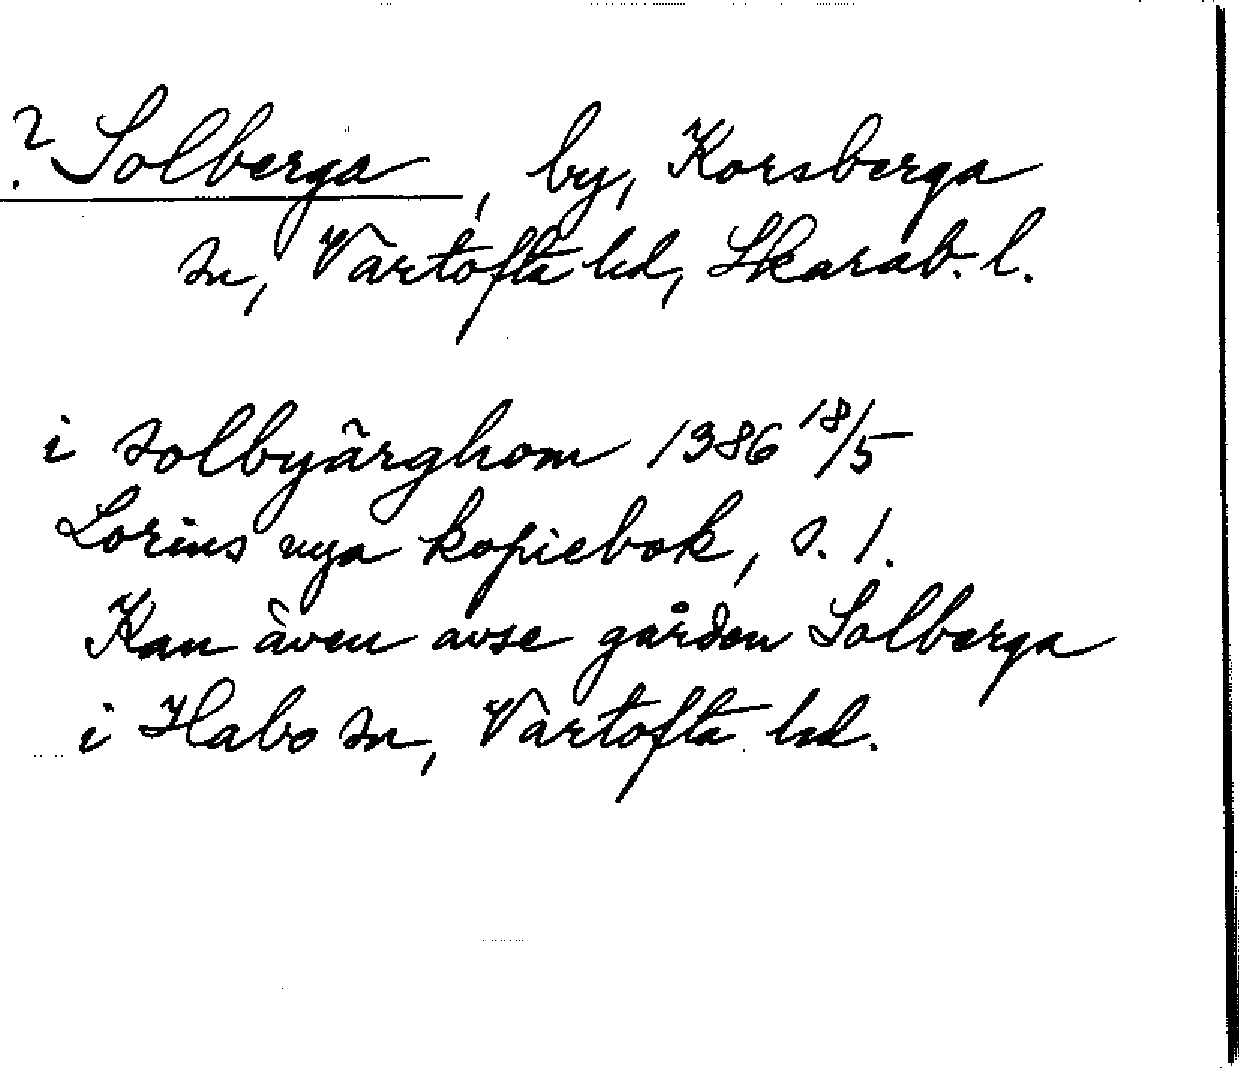 ? Solberga, by, Korsberga
sn, Vartofta hd, Skarab. l.
i solbyärghom 1386 18/5
Lorins nya kopiebok, s. 1.
Kan även avse gården Solberga
i Habo sn, Vartofta hd.